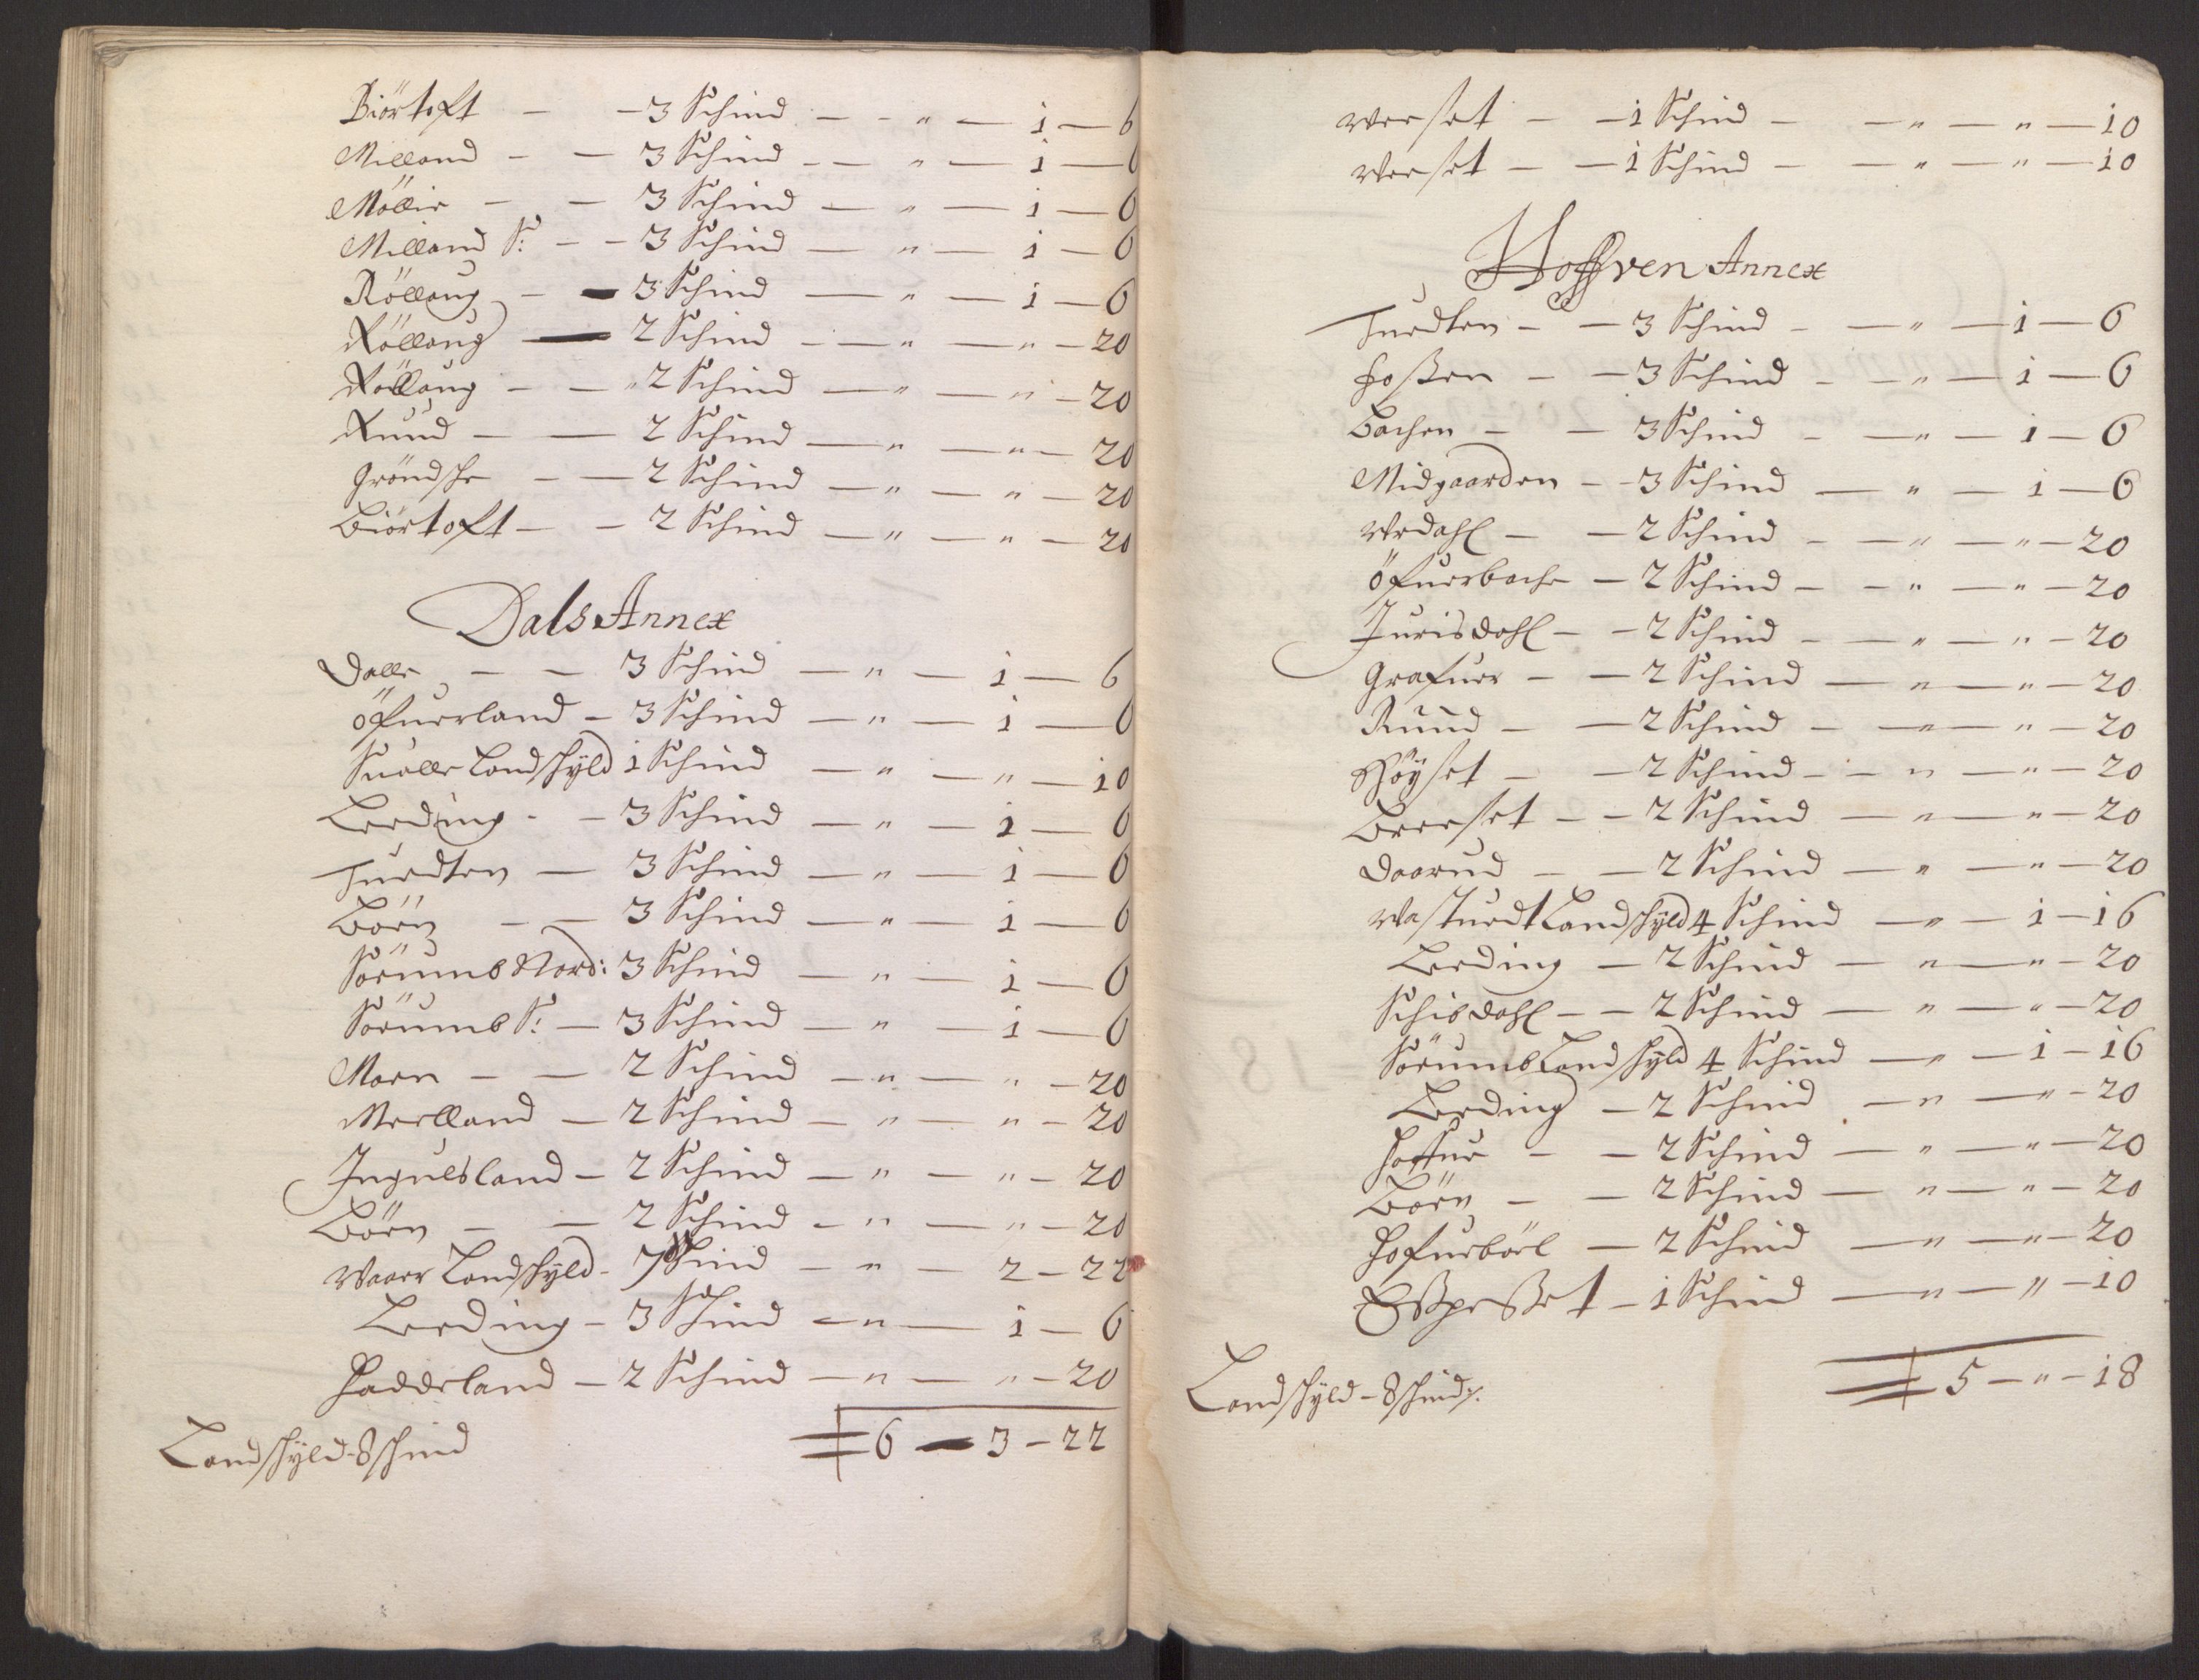 Biörtoft – – 3 Schind – – „ – 1 – 6
Milland – – 3 Schind – – „ – 1 – 6
Möllir – – 3 Schind – „ – 1 – 6
Milland S: – – 3 Schind – „ – 1 – 6
Röllaug – – 3 Schind – „ – 1 – 6
Röllaug – 2 Schind – – „ – „ – 20
Röllaug – – „ 2 Schind – „ – „ – 20
Ruud – – 2 Schind – „ – „ – 20
Gröndsche – – 2 Schind – „ – „ – 20
Biörtoft – – 2 Schind – „ – „ – 20
Dals Annex
Dalle – – 3 Schind – „ – 1 – 6
öfuerland – 3 Schind – „ – 1 – 6
Suolle Landschÿld 1 Schind – „ – „ – 10
Leeding – – 3 Schind – „ – 1 – 6
Tuedten – 3 Schind – „ – 1 – 6
Börn – – 3 Schind – „ – 1 – 6
Sörumb Nord: 3 Schind – „ – 1 – 6
Sörumb S: – 3 Schind – „ – 1 – 6
Moen – – 2 Schind – „ – „ – 20
Melland – 2 Schind – „ – „ – 20
Ingulsland – 2 Schind – „ – „ – 20
Börn – – 2 Schind – „ – „ – 20
Waaer Landschÿld – 7 Schind – „ – 2 – 22
Leeding – 3 Schind – „ – 1 – 6
Haddeland – 2 Schind – „ – „ – 20
6 – 3 – 22
Landschÿld – 8 schind
Veeset – – 1 Schind – – „ – „ – 10
Veeset – – 1 Schind – – „ – „ – 10
Hoffven Annex
Tuedten – – 3 Schind – – „ – 1 – 6
Foßen – – 3 Schind – – „ – 1 – 6
Bachen – – 3 Schind – – „ – 1 – 6
Midgaarden – – 3 Schind – „ – 1 – 6
Urdahl – – 2 Schind – – „ – „ – 20
öfuerbache – 2 Schind – – „ – „ – 20
Jurisdahl – – 2 Schind – – „ – „ – 20
Grafuer – – 2 Schind – „ – „ – 20
Ruud – – 2 Schind – – „ – „ – 20
Höÿset – – 2 Schind – – „ – „ – 20
Breeset – – 2 Schind – „ – „ – 20
Daarud – – 2 Schind – „ – „ – 20
Wastuedt Landschÿld 4 Schind – „ – 1 – 16
Leeding – 2 Schind – „ – „ – 20
Schisdahl – – 2 Schind – „ – „ – 20
Sörumb Landschÿld 4 Schind – „ – 1 – 16
Leeding – 2 Schind – „ – „ – 20
– – 2 Schind – „ – „ – 20
Börn – – 2 Schind – „ – „ – 20
Hofuerböel – 2 Schind – „ – „ – 20
Espeset – 1 Schind – „ – „ – 10
5 – „ – 18
Landschÿld – 8 schind